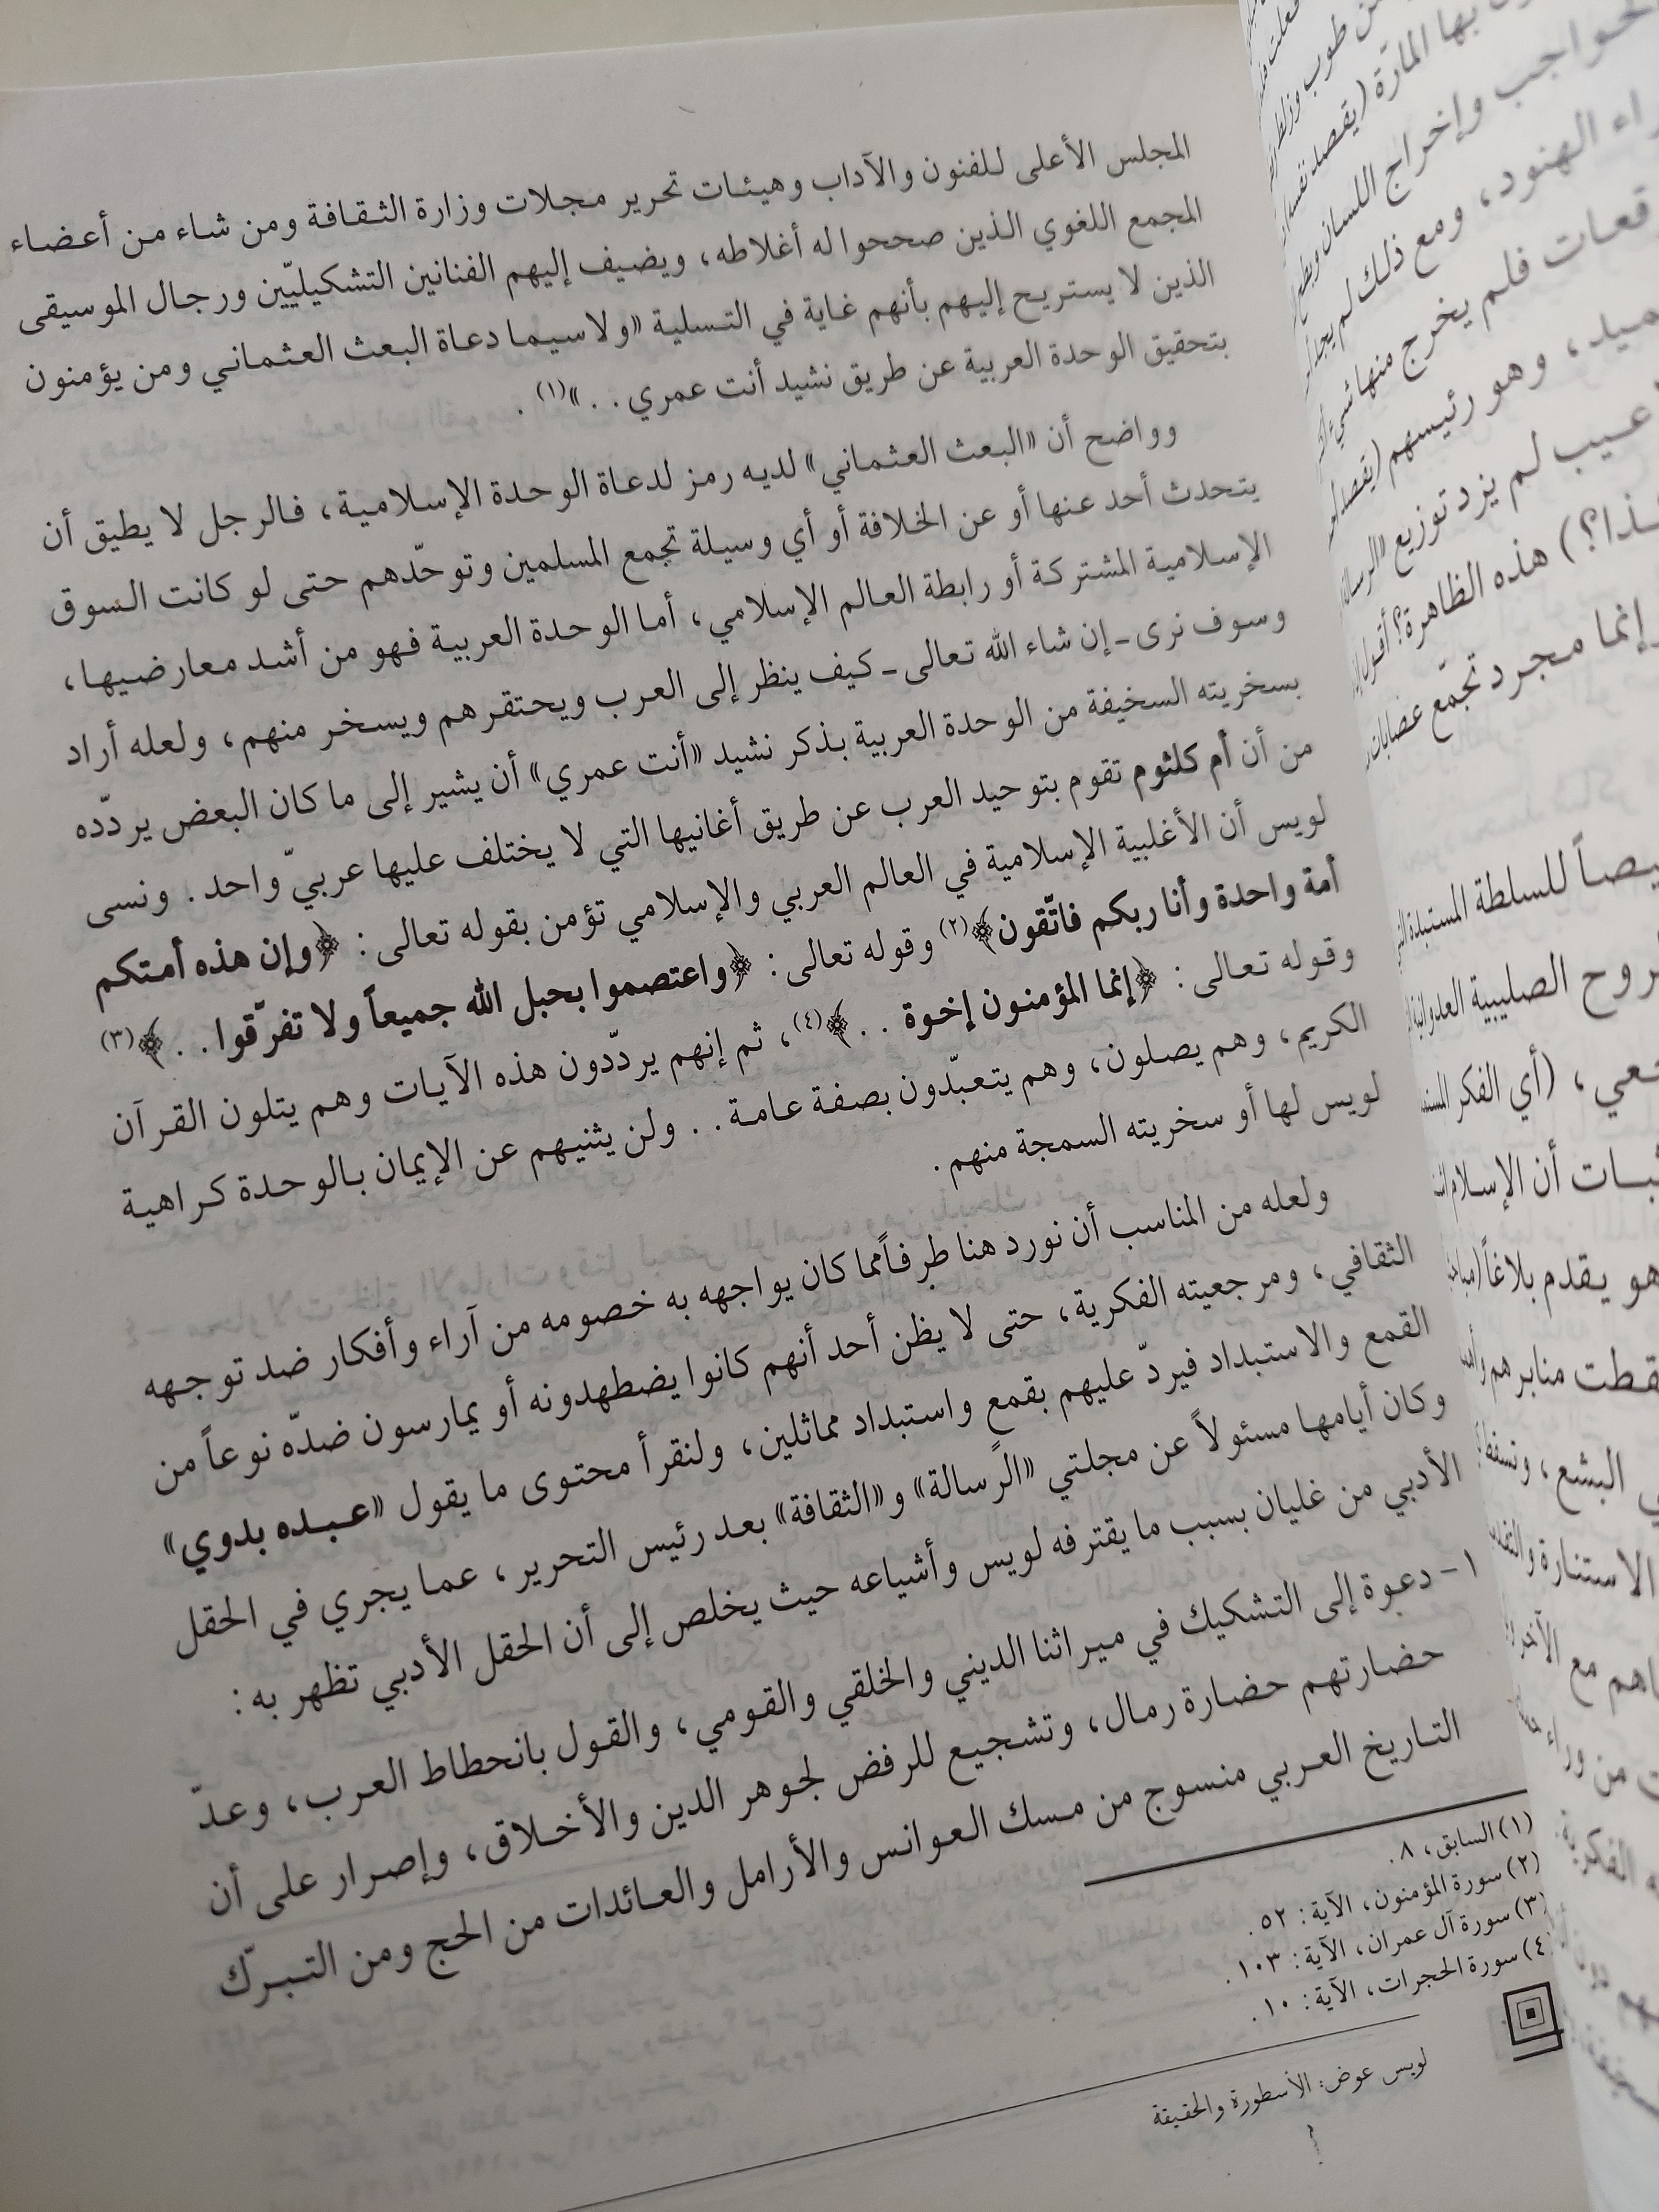 المجلس الأعلى للفنون والآداب وهيئات تحرير مجلات وزارة الثقافة ومن شاء من أعضاء
المجمع اللغوي الذين صححوا له أغلاطه، ويضيف إليهم الفنانين التشكيليّين ورجال الموسيقى
الذين لا يستريح إليهم بأنهم غاية في التسلية «ولاسيما دعاة البعث العثماني ومن يؤمنون
بتحقيق الوحدة العربية عن طريق نشيد أنت عمري . . »(١) .
وواضح أن «البعث العثماني» لديه رمز لدعاة الوحدة الإسلامية، فالرجل لا يطيق أن
يتحدث أحد عنها أو عن الخلافة أو أي وسيلة تجمع المسلمين وتوحّدهم حتى لو كانت السوق
الإسلامية المشتركة أو رابطة العالم الإسلامي، أما الوحدة العربية فهو من أشد معارضيها،
وسوف نرى ـ إن شاء الله تعالى ـ كيف ينظر إلى العرب ويحتقرهم ويسخر منهم، ولعله أراد
بسخريته السخيفة من الوحدة العربية بذكر نشيد «أنت عمري» أن يشير إلى ما كان البعض يردّده
من أن أم كلثوم تقوم بتوحيد العرب عن طريق أغانيها التي لا يختلف عليها عربيّ واحد . ونسى
لويس أن الأغلبية الإسلامية في العالم العربي والإسلامي تؤمن بقوله تعالى : ﴿وإن هذه أمتكم
أمة واحدة وأنا ربكم فاتّقون﴾(٢) وقوله تعالى : ﴿واعتصموا بحبل الله جميعاً ولا تفرّقوا . . ﴾(٣)
وقوله تعالى : ﴿إنما المؤمنون إخوة . . ﴾(٤)، ثم إنهم يردّدون هذه الآيات وهم يتلون القرآن
الكريم، وهم يصلون، وهم يتعبّدون بصفة عامة . . ولن يثنيهم عن الإيمان بالوحدة كراهية
لويس لها أو سخريته السمجة منهم .
ولعله من المناسب أن نورد هنا طرفاً مما كان يواجهه به خصومه من آراء وأفكار ضد توجهه
الثقافي، ومرجعيته الفكرية، حتى لا يظن أحد أنهم كانوا يضطهدونه أو يمارسون ضدّه نوعاً من
القمع والاستبداد فيردّ عليهم بقمع واستبداد مماثلين، ولنقرأ محتوى ما يقول «عبده بدوي»
وكان أيامها مسئولاً عن مجلتي «الرسالة» و«الثقافة» بعد رئيس التحرير، عما يجري في الحقل
الأدبي من غليان بسبب ما يقترفه لويس وأشياعه حيث يخلص إلى أن الحقل الأدبي تظهر به :
١ - دعوة إلى التشكيك في ميراثنا الديني والخلقي والقومي، والقول بانحطاط العرب، وعدّ
حضارتهم حضارة رمال، وتشجيع للرفض لجوهر الدين والأخلاق، وإصرار على أن
التاريخ العربي منسوج من مسك العوانس والأرامل والعائدات من الحج ومن التبرّك
(١) السابق، ٨ .
(٢) سورة المؤمنون، الآية : ٥٢ .
(٣) سورة آل عمران، الآية : ١٠٣ .
(٤) سورة الحجرات، الآية : ١٠ .
لويس عوض: الأسطورة والحقيقة
بها المارّة (يقصد
الحواجب وإخراج اللسان
الهنود، ومع ذلك لم
فلم يخرج منها
وهو رئيسهم
عيب لم يزد توزيع
هذه الظاهرة؟ أقول
وإنما مجرد تجمّع عصابات
للسلطة المستبدة
الصليبية
(أي الفكر
أن الإسلام
هو يقدم بلاغاً
منابرهم
البشع،
الاستنارة
مع
من وراء